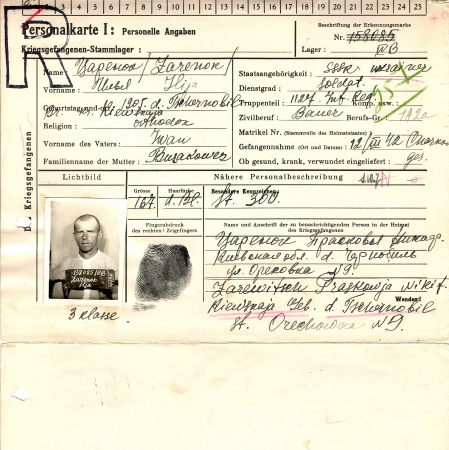 1 2 3 4 5 6 7 8 9 10 11 12 13 14 15 16 17 18 19 20 21 22 23 24 25
R
Personalkarte I: Personelle Angaben
Beschriftung der Erkennungsmarke
Kriegsgefangenen-Stammlager:
Nr. 158085
Lager: IV B
Name Царенок / Zarenok /
Staatsangehörigkeit: SSSR
Vorname: Илья Ilja
Dienstgrad: Soldat
Geburtstag und -ort 1905. d. Tschernobil
Truppenteil: 1127 Inf. Reg. Komp. usw.:
Religion: orthodox
Zivilberuf: Bauer Berufs-Gr.:
Vorname des Vaters: Iwan
Matrikel Nr. (Stammrolle des Heimatstaates):
Gefangennahme (Ort und Datum):
Familienname der Mutter:
Ob gesund, krank, verwundet eingeliefert: ges.
Kriegsgefangenen
Lichtbild
Nähere Personalbeschreibung
Grösse
Haarfarbe
Besondere Kennzeichen:
167
d. Bl.
St. 300.
Fingerabdruck
des rechten! Zeigefingers
Name und Anschrift der zu benachrichtigenden Person in der Heimat
des Kriegsgefangenen
Царенок Прасковья
Киевская обл. д. Чернобиль
ул. Ореховка №9.
Zarewitsch Praskowja Nikit.
Kiewskaja Geb. d. Tschernobil
Wenden!
St. Orechowka N 9.
158085 IVB
Zarenok
Ilja
3 klasse.